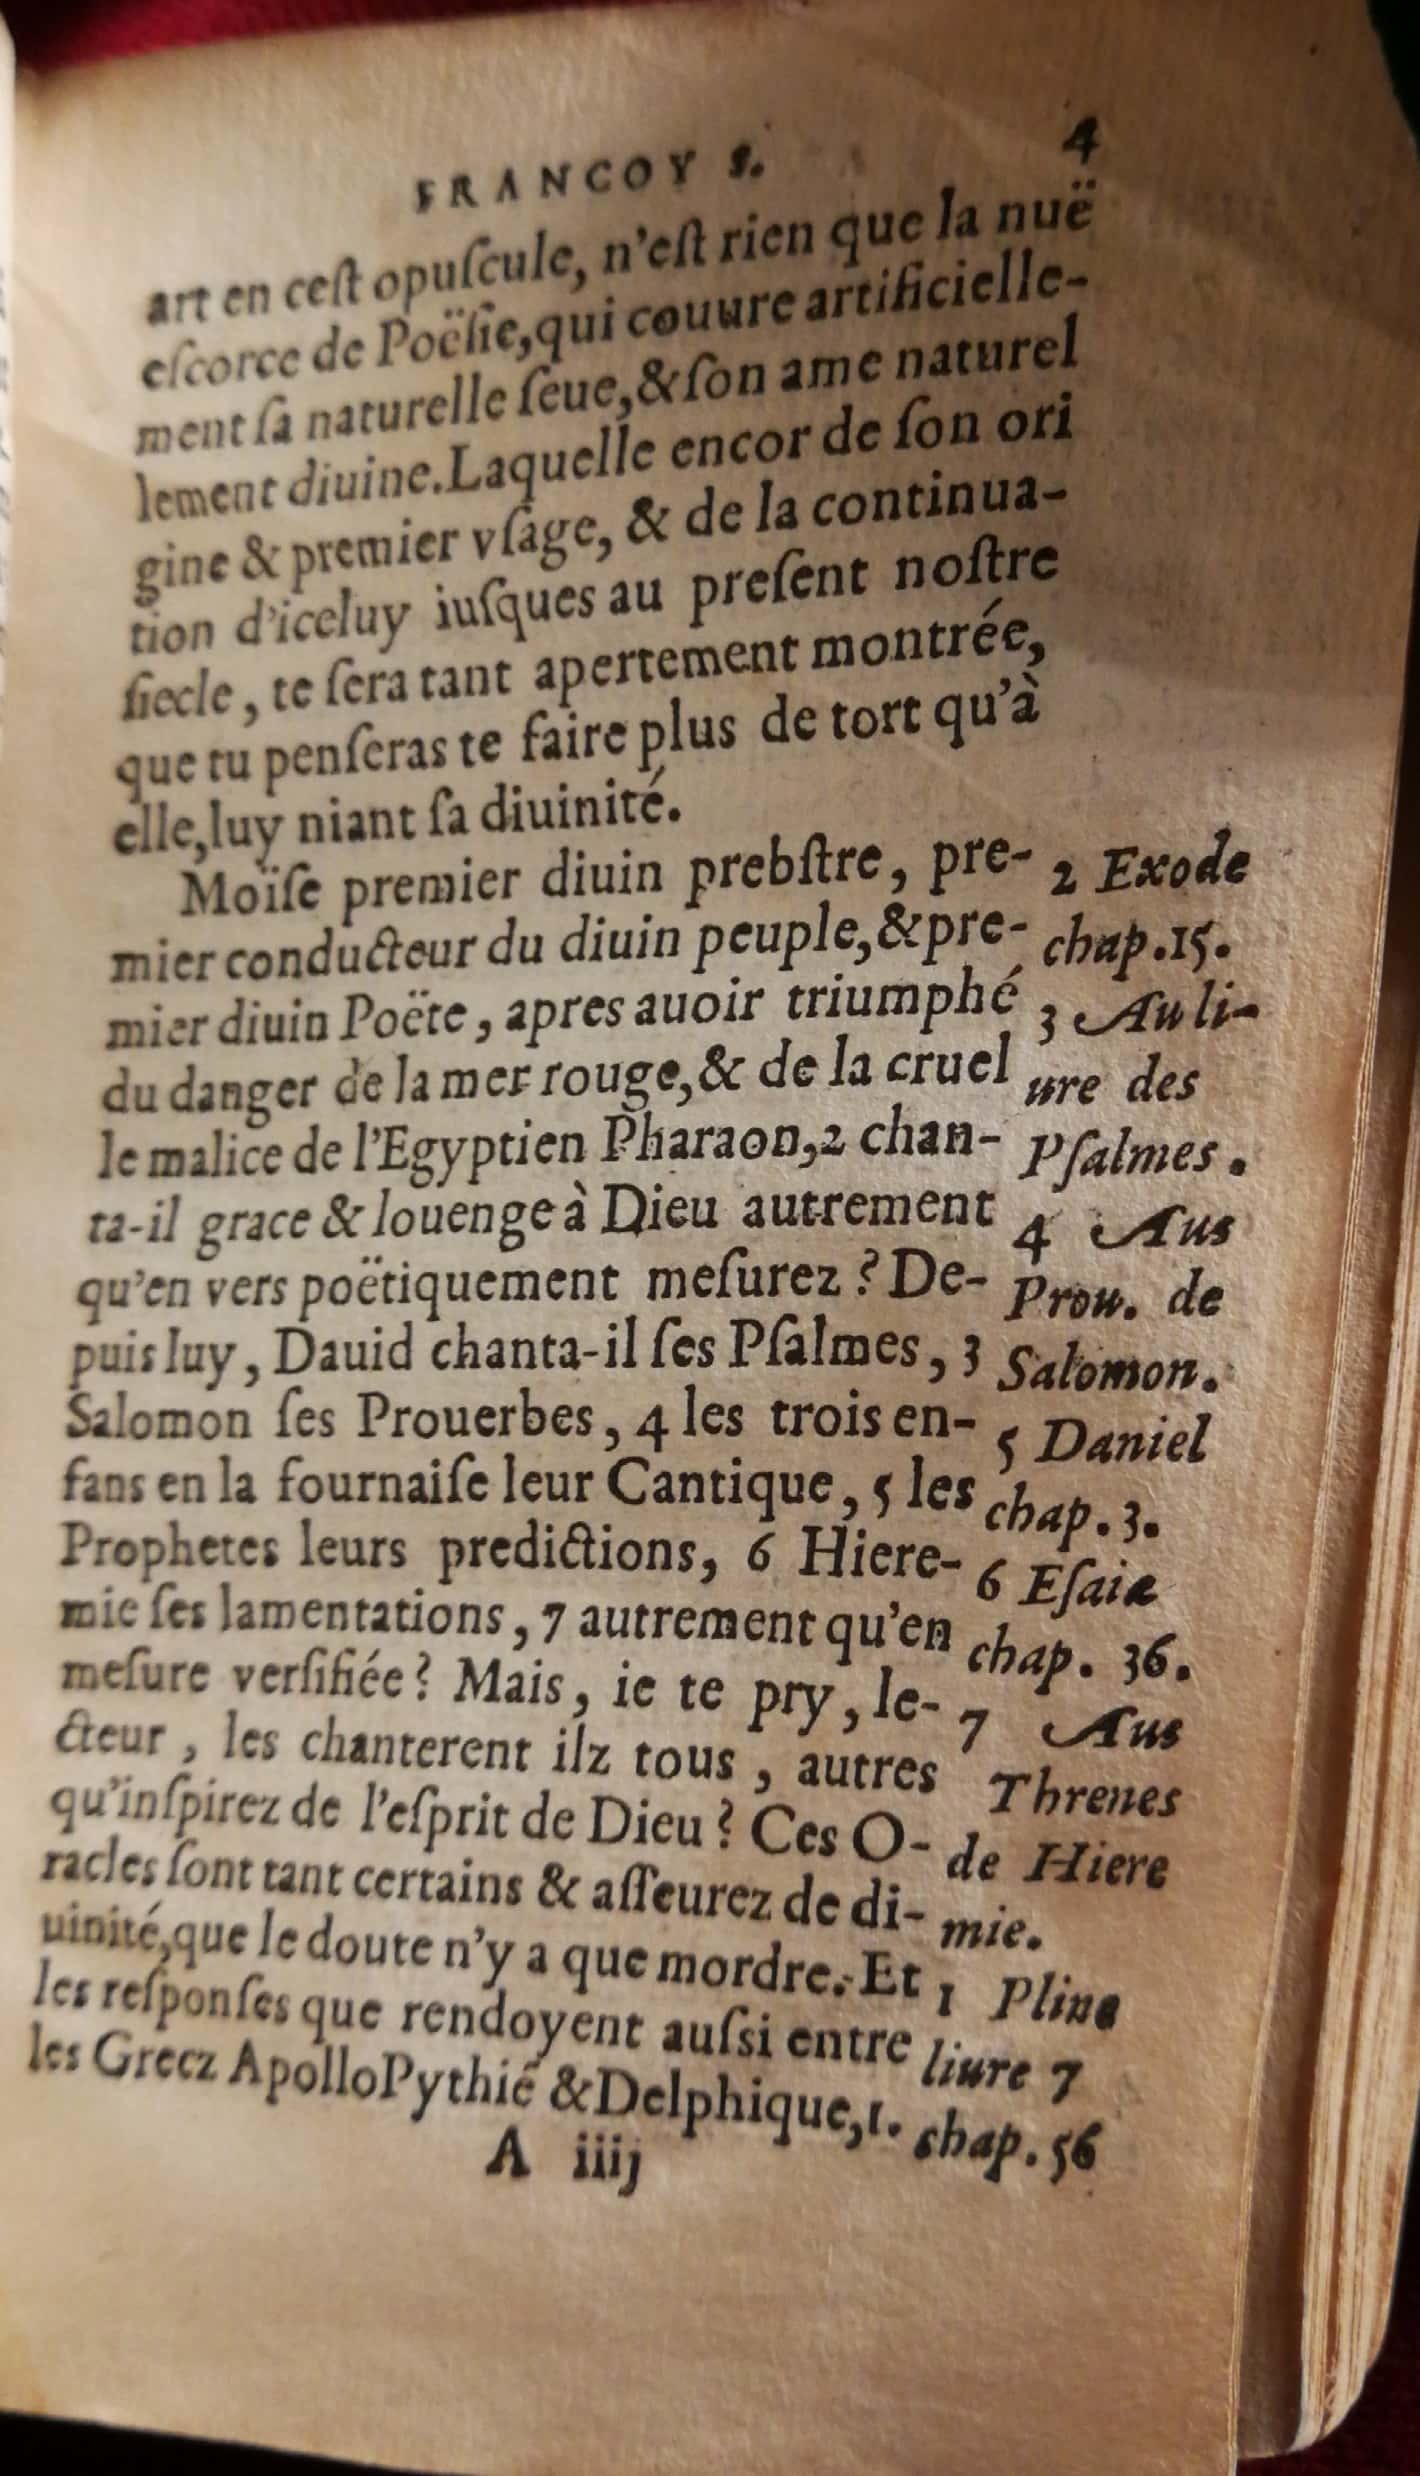 FRANCOY S. 4
art en ceſt opuſcule, n'eſt rien que la nuë
eſcorce de Poëſie,qui couure artificielle-
ment ſa naturelle ſeue,&ſon ame naturel
lement diuine.Laquelle encor de ſon ori
gine & premier vſage, & de la continua-
tion d'iceluy iuſques au preſent noſtre
ſiecle, te ſera tant apertement montrée,
que tu penſeras te faire plus de tort qu'à
elle,luy niant ſa diuinité.
Moïſe premier diuin prebſtre, pre-
mier conducteur du diuin peuple,&pre-
mier diuin Poëte, apres auoir triumphé
du danger de la mer rouge,& de la cruel
le malice de l'Egyptien Pharaon,2 chan-
ta-il grace & louenge à Dieu autrement
qu'en vers poëtiquement meſurez? De-
puis luy, Dauid chanta-il ſes Pſalmes, 3
Salomon ſes Prouerbes, 4 les trois en-
fans en la fournaiſe leur Cantique, 5 les
Prophetes leurs predictions, 6 Hiere-
mie ſes lamentations, 7 autrement qu'en
meſure verſifiée? Mais, ie te pry, le-
cteur, les chanterent ilz tous, autres
qu'inſpirez de l'eſprit de Dieu? Ces O-
racles ſont tant certains & aſſeurez de di-
uinité,que le doute n'y a que mordre. Et
les reſponſes que rendoyent auſsi entre
les Grecz Apollo Pythié & Delphique,1.
A iiij
2 Exode
chap.15.
3 Au li-
ure des
Pſalmes.
4 Aus
Prou. de
Salomon.
5 Daniel
chap.3.
6 Eſaie
chap. 36.
7 Aus
Threnes
de Hiere
mie.
1 Pline
liure 7
chap. 56